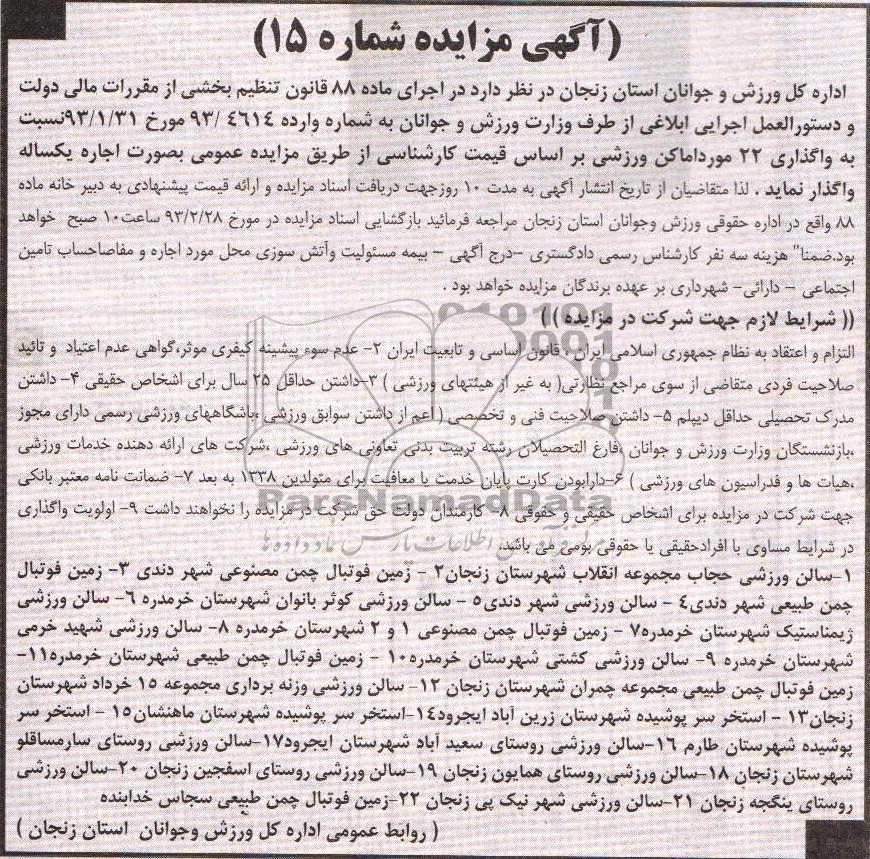 (آگهی مزایده شماره ۱۵)
اداره کل ورزش و جوانان استان زنجان در نظر دارد در اجرای ماده ۸۸ قانون تنظیم بخشی از مقررات مالی دولت
و دستورالعمل اجرایی ابلاغی از طرف وزارت ورزش و جوانان به شماره وارده ۴۶۱۴ /۹۳ مورخ ۹۳/۱/۳۱نسبت
به واگذاری ۲۲ مورداماکن ورزشی بر اساس قیمت کارشناسی از طریق مزایده عمومی بصورت اجاره یکساله
واگذار نماید . لذا متقاضیان از تاریخ انتشار آگهی به مدت ۱۰ روزجهت دریافت اسناد مزایده و ارائه قیمت پیشنهادی به دبیر خانه ماده
۸۸ واقع در اداره حقوقی ورزش وجوانان استان زنجان مراجعه فرمائید بازگشایی اسناد مزایده در مورخ ۹۳/۲/۲۸ ساعت۱۰ صبح خواهد
بود.ضمنا" هزینه سه نفر کارشناس رسمی دادگستری –درج آگهی – بیمه مسئولیت وآتش سوزی محل مورد اجاره و مفاصاحساب تامین
اجتماعی – دارائی– شهرداری بر عهده برندگان مزایده خواهد بود .
(( شرایط لازم جهت شرکت در مزایده ))
التزام و اعتقاد به نظام جمهوری اسلامی ایران ، قانون اساسی و تابعیت ایران ۲- عدم سوء پیشینه کیفری موثر،گواهی عدم اعتیاد و تائید
صلاحیت فردی متقاضی از سوی مراجع نظارتی( به غیر از هیئتهای ورزشی ) ۳-داشتن حداقل ۲۵ سال برای اشخاص حقیقی ۴- داشتن
مدرک تحصیلی حداقل دیپلم ۵- داشتن صلاحیت فنی و تخصصی ( اعم از داشتن سوابق ورزشی ،باشگاههای ورزشی رسمی دارای مجوز
،بازنشستگان وزارت ورزش و جوانان ،فارغ التحصیلان رشته تربیت بدنی تعاونی های ورزشی ،شرکت های ارائه دهنده خدمات ورزشی
،هیات ها و فدراسیون های ورزشی ) ۶-دارابودن کارت پایان خدمت یا معافیت برای متولدین ۱۳۳۸ به بعد ۷- ضمانت نامه معتبر بانکی
جهت شرکت در مزایده برای اشخاص حقیقی و حقوقی ۸- کارمندان دولت حق شرکت در مزایده را نخواهند داشت ۹- اولویت واگذاری
در شرایط مساوی با افرادحقیقی یا حقوقی بومی می باشد.
۱-سالن ورزشی حجاب مجموعه انقلاب شهرستان زنجان۲ - زمین فوتبال چمن مصنوعی شهر دندی ۳- زمین فوتبال
چمن طبیعی شهر دندی۴ - سالن ورزشی شهر دندی۵ - سالن ورزشی کوثر بانوان شهرستان خرمدره ۶- سالن ورزشی
ژیمناستیک شهرستان خرمدره۷ - زمین فوتبال چمن مصنوعی ۱ و ۲ شهرستان خرمدره ۸- سالن ورزشی شهید خرمی
شهرستان خرمدره ۹- سالن ورزشی کشتی شهرستان خرمدره۱۰ - زمین فوتبال چمن طبیعی شهرستان خرمدره۱۱-
زمین فوتبال چمن طبیعی مجموعه چمران شهرستان زنجان ۱۲- سالن ورزشی وزنه برداری مجموعه ۱۵ خرداد شهرستان
زنجان۱۳ - استخر سر پوشیده شهرستان زرین آباد ایجرود۱۴-استخر سر پوشیده شهرستان ماهنشان۱۵ - استخر سر
پوشیده شهرستان طارم ۱۶-سالن ورزشی روستای سعید آباد شهرستان ایجرود۱۷-سالن ورزشی روستای سارمساقلو
شهرستان زنجان ۱۸-سالن ورزشی روستای همایون زنجان ۱۹-سالن ورزشی روستای اسفجین زنجان ۲۰-سالن ورزشی
روستای ینگجه زنجان ۲۱-سالن ورزشی شهر نیک پی زنجان ۲۲-زمین فوتبال چمن طبیعی سجاس خدابنده
( روابط عمومی اداره کل ورزش وجوانان استان زنجان )
ParsNamadData